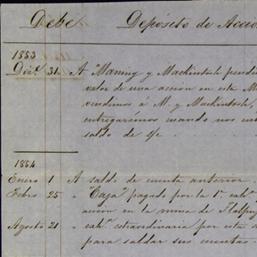 Debe Depósito de Accio
1853
Dice. 31. A Manning y Mackintosh pendi
valor de una accion en esta M
vendimos à M. y Mackintosh,
entregarémos cuando nos
saldo de
1854
Enero 1 A saldo de cuenta anterior
Febro 25 " "Caja" pagado por la 1a. cabn.
accion en la mina de Tlalpuj
Agosto 21 " cabn. extraordinaria por esta
para saldar sus cuentas.